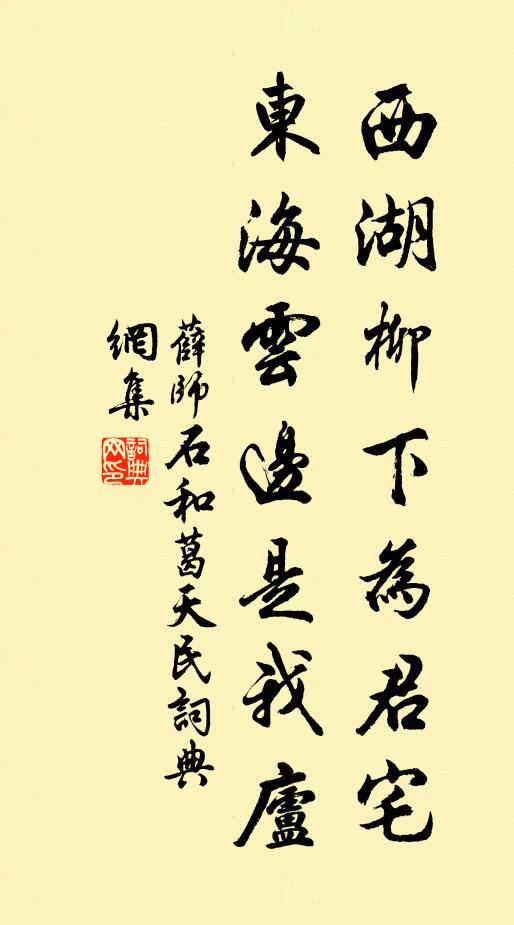 西湖柳下為君宅
東海雲邊是我廬
薛師石和葛天民詞典
網集
詞典網印